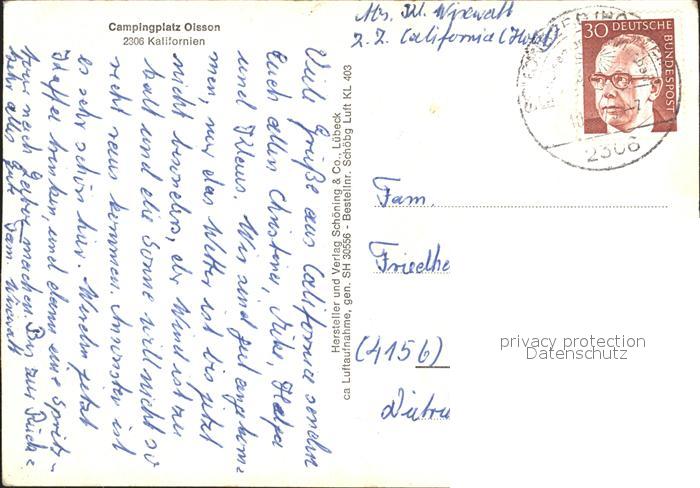 Campingplatz Olsson
2306 Kalifornien
Viele Grüße aus California senden
Euch allen Christine, Mike, Helga
und Klaus. Wir sind gut angekom=
men, nur das Wetter ist bis jetzt
nicht besonders, der Wind ist zu
kalt und die Sonne will nicht so
recht raus kommen. Ansonsten ist
es sehr schön hier. Werden jetzt
Kaffee trinken, und dann eine Spritz-
tour nach machen. Bis zur Rück=
kehr alles Gute Fam.
Hersteller und Verlag Schöning & Co., Lübeck
ca Luftaufnahme, gen. SH 30556 - Bestellnr. Schöbg Luft KL 403
Abs. Kl.
z. Z. California (Holst)
30 DEUTSCHE
BUNDESPOST
2306
Fam.
Friedhe
(4156)
privacy protection
Datenschutz